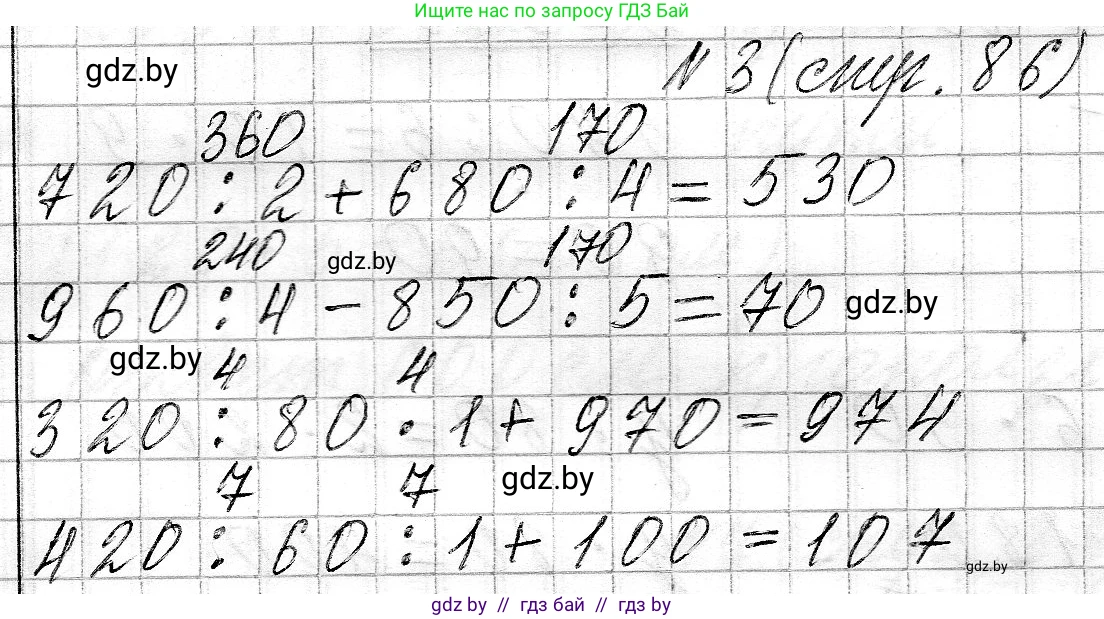 Ищите нас по запросу ГДЗ Бай
gdz.by
№ 3 (стр. 86)
360 170
720 : 2 + 680 : 4 = 530
240 gdz.by 170
960 : 4 - 850 : 5 = 70 gdz.by
gdz.by 4 4
320 : 80 · 1 + 970 = 974
7 7 gdz.by
420 : 60 : 1 + 100 = 107
gdz.by
gdz by // гдз бай // гдз by